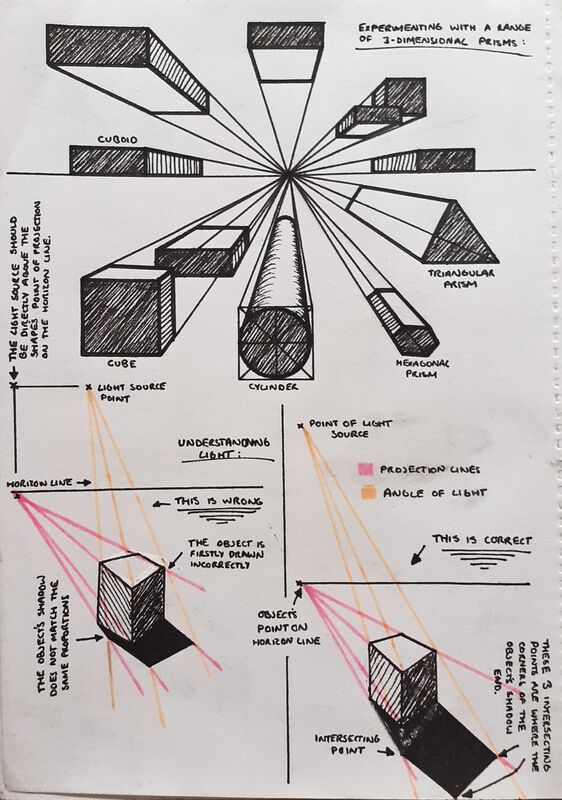 EXPERIMENTING WITH A RANGE
OF 3-DIMENSIONAL PRISMS:
CUBOID
THE LIGHT SOURCE SHOULD
BE DIRECTLY ABOVE THE
SHAPES POINT OF PROJECTION
ON THE HORIZON LINE.
TRIANGULAR
PRISM
CUBE
CYLINDER
HEXAGONAL
PRISM
LIGHT SOURCE
POINT
UNDERSTANDING
LIGHT:
HORIZON LINE
THIS IS WRONG
THE OBJECT IS
FIRSTLY DRAWN
INCORRECTLY
THE OBJECT'S SHADOW
DOES NOT MATCH THE
SAME PROPORTIONS
POINT OF LIGHT
SOURCE
PROJECTION LINES
ANGLE OF LIGHT
THIS IS CORRECT
OBJECT'S
POINT ON
HORIZON LINE
INTERSECTING
POINT
THESE 3 INTERSECTING
POINTS ARE WHERE THE
CORNERS OF THE
OBJECT'S SHADOW
END.